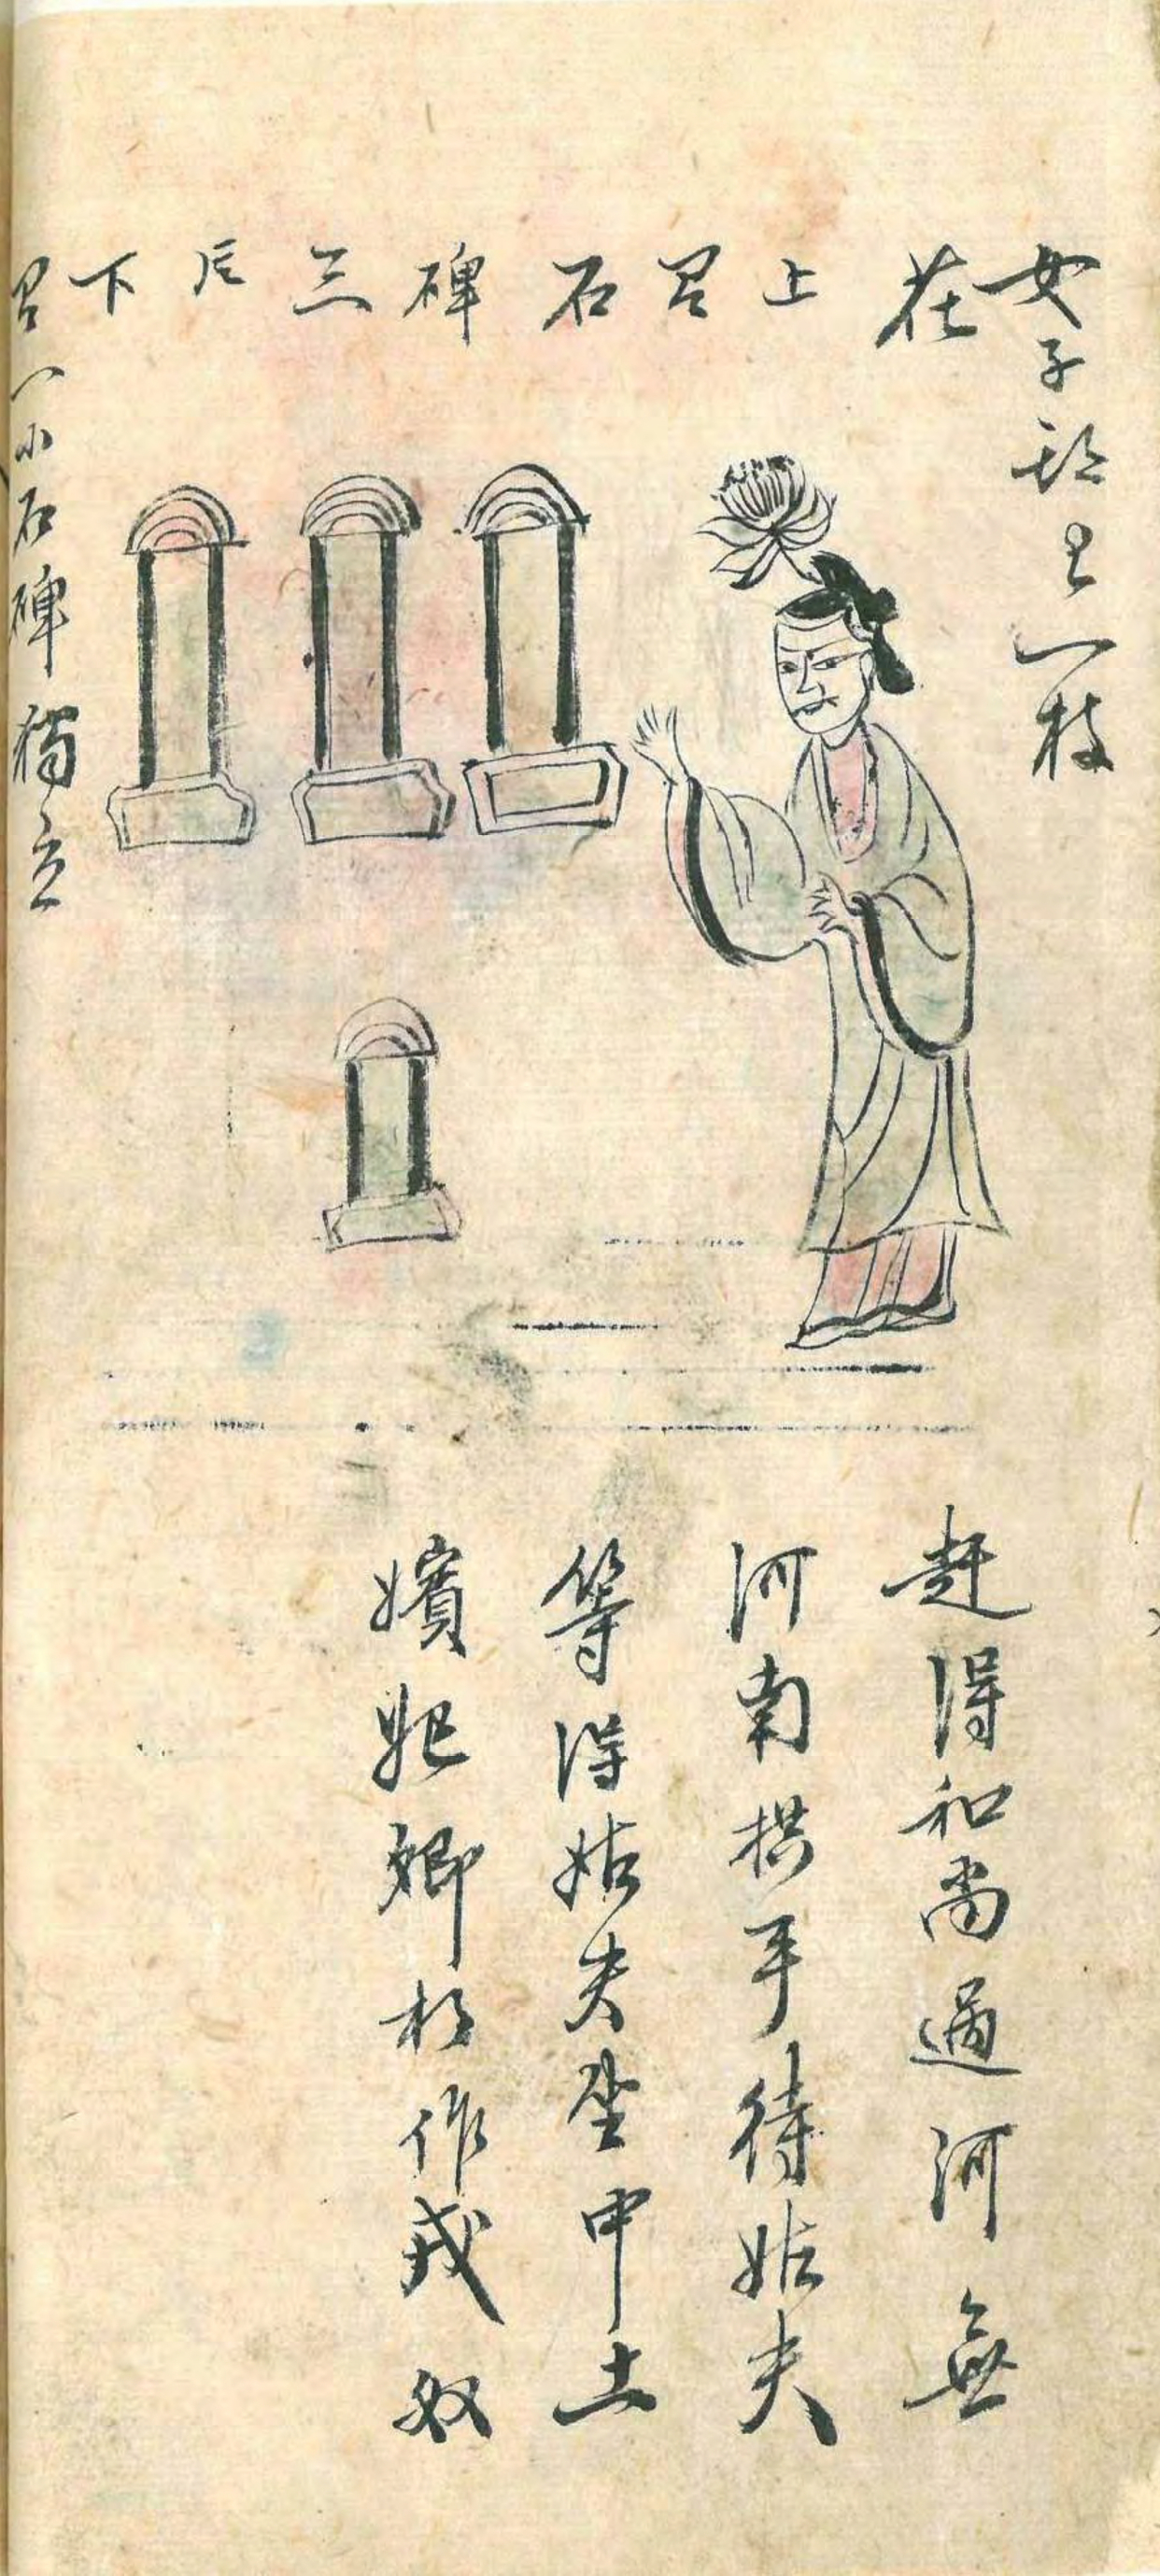 女子頭上一枝
花
上
石
碑
三
下
一小石碑獨立
赶得和尚過河無
河南拱手待姑夫
等得姑夫坐中土
嬪妃卿相作戎奴